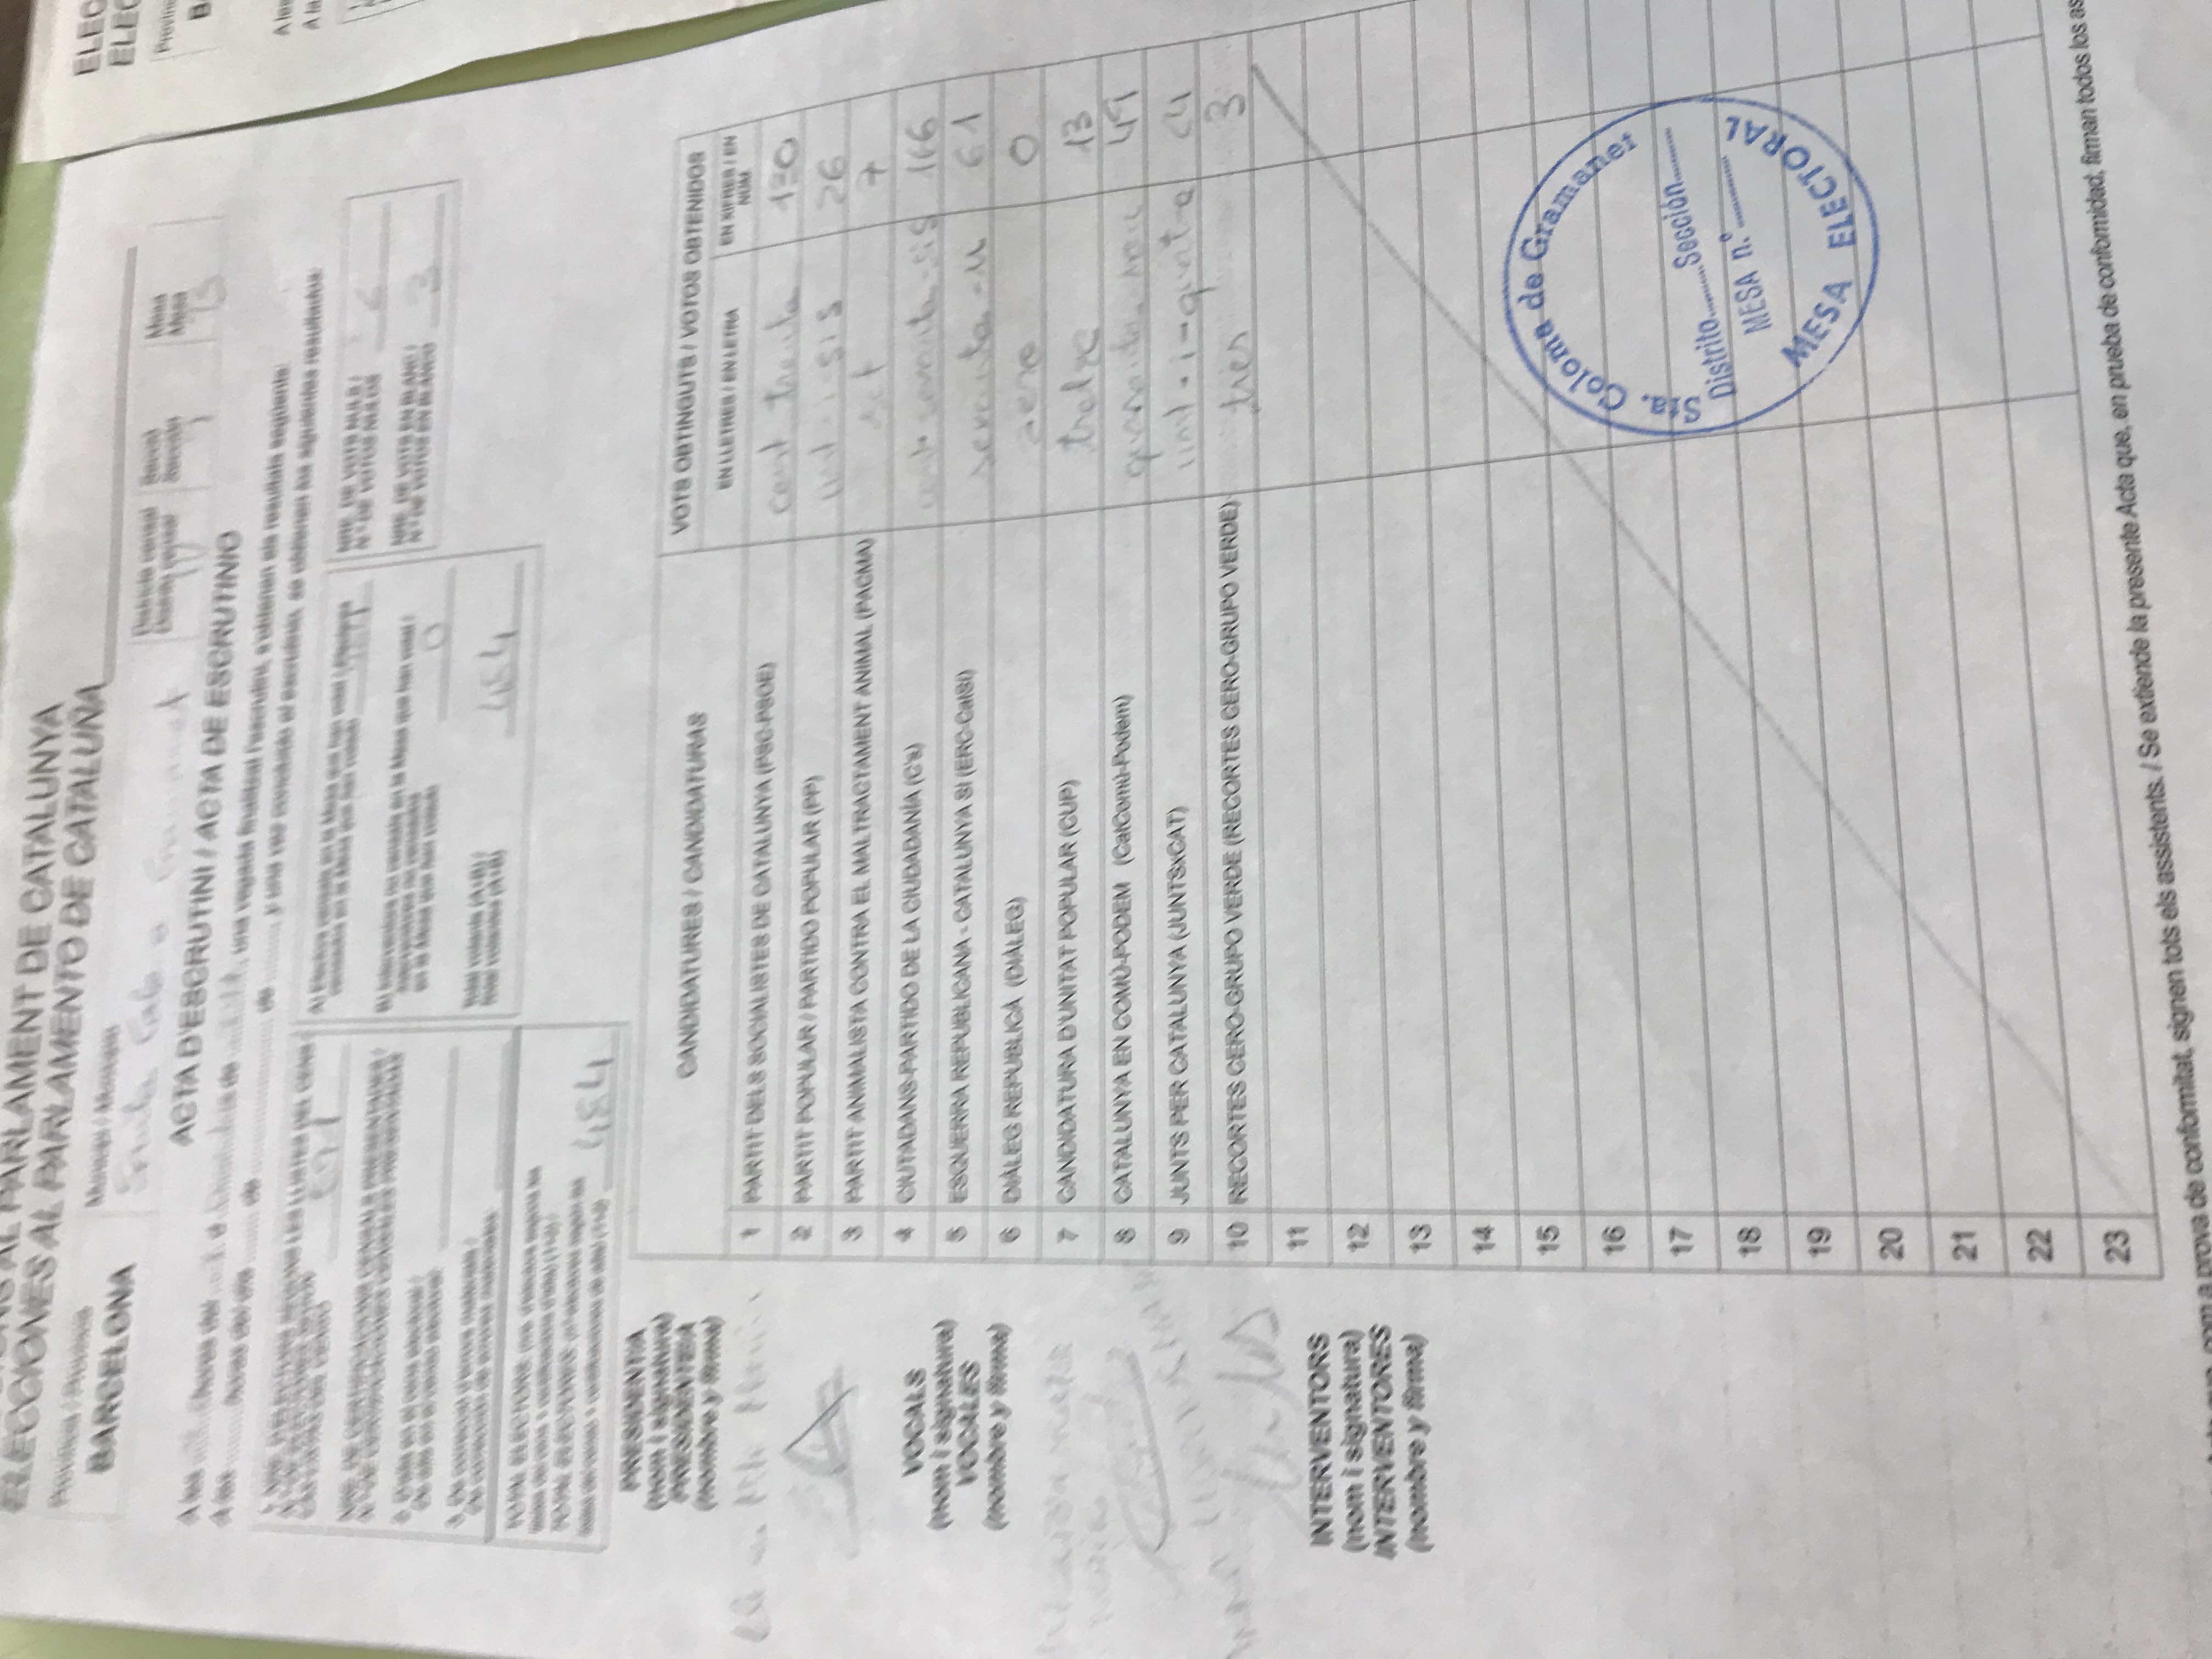 AL PARLAMENT DE CATALUNYA
ELECCIONES AL PARLAMENTO DE CATALUÑA
Província / Provincia
BARCELONA
Municipi / Municipio
Districte censal
Distrito censal
Secció
Sección
Mesa
Mesa
ACTA D'ESCRUTINI / ACTA DE ESCRUTINIO
A les hores del d de , una vegada finalitzat l'escrutini, s'obtenen els resultats següents:
A las horas del día de de , y una vez concluido el escrutinio, se obtienen los siguientes resultados:
1. NRE. D'ELECTORS SEGONS LES LLISTES DEL CENS /
NRE. DE CERTIFICACIONS CENSALS PRESENTADES /
N.º DE CERTIFICACIONES CENSALES PRESENTADAS
2. D'alta en el cens electoral /
De alta en el censo electoral:
3. De correcció d'errors materials /
De corrección de errores materiales:
TOTAL ELECTORS: (nre. d'electors segons les
llistes del cens + certificacions d'alta) (1+2) /
TOTAL ELECTORES: (n.º electores según las
listas del censo + certificaciones de alta) (1+2) 484
A) Electors censats en la Mesa que han votat / Electores
censados en la Mesa que han votado
B) Interventors no censats en la Mesa que han votat /
Interventores no censados
en la Mesa que han votado 0
Total votants (A+B) /
Total votantes (A+B) 484
NRE. DE VOTS NULS /
N.º DE VOTOS NULOS 2
NRE. DE VOTS EN BLANC /
N.º DE VOTOS EN BLANCO 3
PRESIDENT/A
(nom i signatura)
PRESIDENTE/A
(nombre y firma)
VOCALS
(nom i signatura)
VOCALES
(nombre y firma)
INTERVENTORS
(nom i signatura)
INTERVENTORES
(nombre y firma)
CANDIDATURES / CANDIDATURAS
VOTS OBTINGUTS / VOTOS OBTENIDOS
EN LLETRES / EN LETRA
EN XIFRES / EN
NÚM.
1 PARTIT DELS SOCIALISTES DE CATALUNYA (PSC-PSOE) cent trenta 130
2 PARTIT POPULAR / PARTIDO POPULAR (PP) vint-i-sis 26
3 PARTIT ANIMALISTA CONTRA EL MALTRACTAMENT ANIMAL (PACMA) set 7
4 CIUTADANS-PARTIDO DE LA CIUDADANÍA (C's) 166
5 ESQUERRA REPUBLICANA - CATALUNYA SÍ (ERC-CatSÍ) 61
6 DIÀLEG REPUBLICÀ (DIÀLEG) zero 0
7 CANDIDATURA D'UNITAT POPULAR (CUP) tretze 13
8 CATALUNYA EN COMÚ-PODEM (CatComú-Podem) 49
9 JUNTS PER CATALUNYA (JUNTSxCAT) vint-i-quatre 24
10 RECORTES CERO-GRUPO VERDE (RECORTES CERO-GRUPO VERDE) tres 3
11
12
13
14
15
16
17
18
19
20
21
22
23
Sta. Coloma de Gramanet
Distrito Sección
MESA n.º
MESA ELECTORAL
com a prova de conformitat, signen tots els assistents. / Se extiende la presente Acta que, en prueba de conformidad, firman todos los
ELEC
ELEC